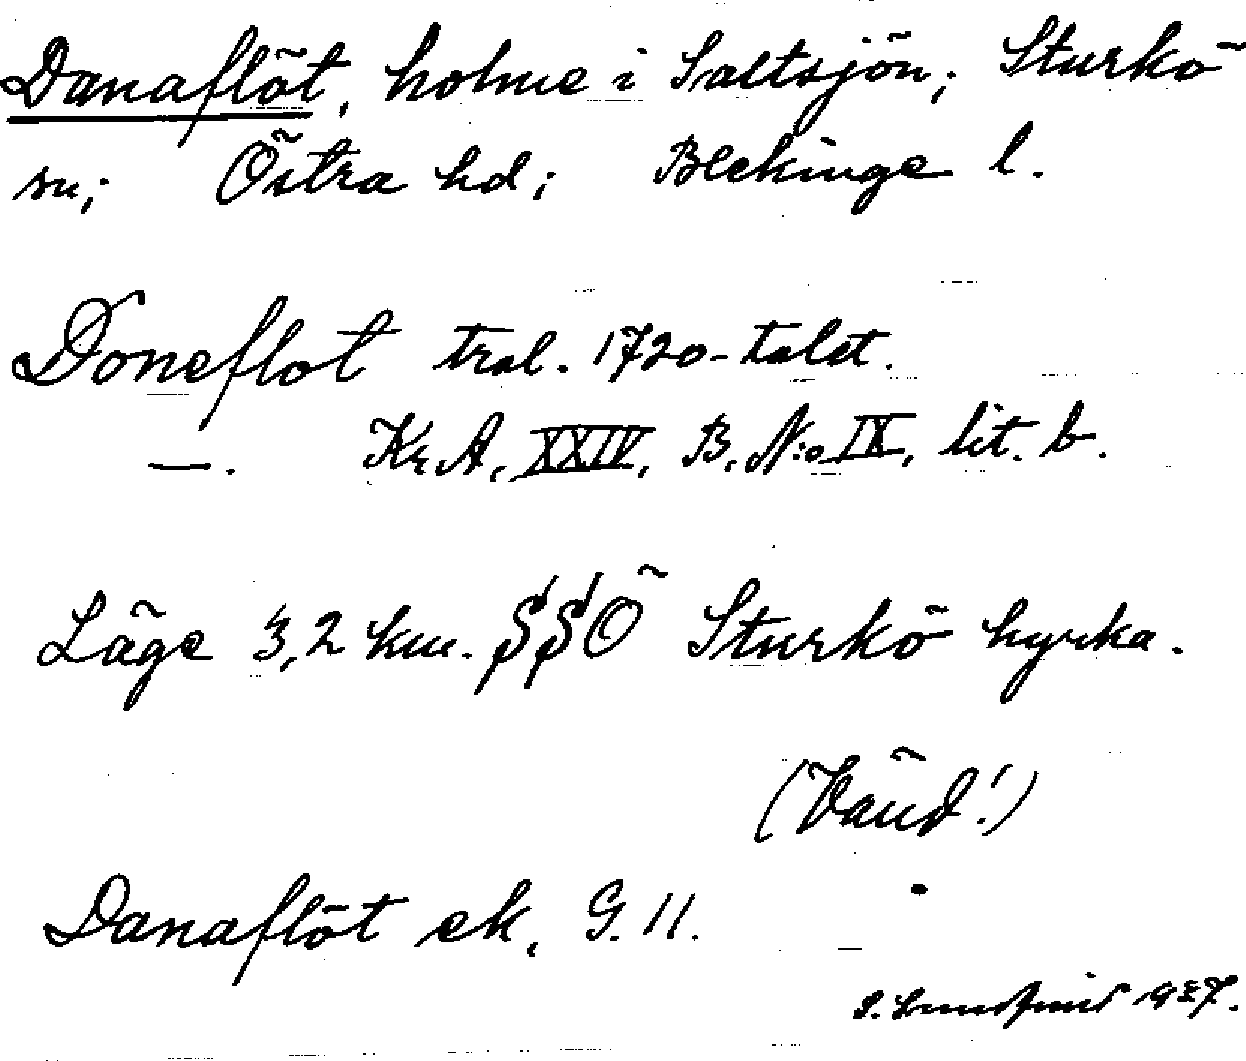 Danaflöt, holme i Saltsjön; Sturkö
sn; Östra hd; Blekinge l.
Doneflot tral. 1720-talet.
—. Kr.A, XXIV, B. N:o IX, lit. b.
Läge 3,2 km. SSÖ Sturkö kyrka.
(Vänd!)
Danaflöt ek, G. 11.
1927.